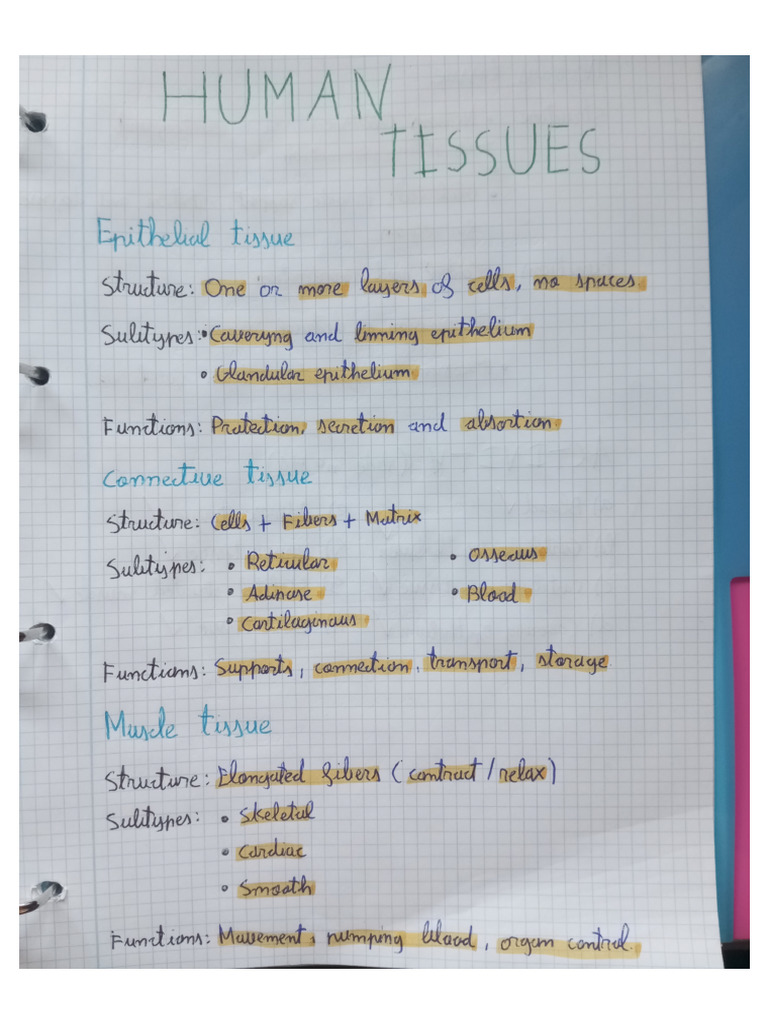 HUMAN
TISSUES
Epithelial tissue
Structure: One or more layers of cells, no spaces
Subtypes: • Caveryng and linning epithelium
• Glandular epithelium
Functions: Protection, secretion and absortion.
Connective tissue
Structure: Cells + Fibers + Matrix
Subtypes: • Reticular • Osseous
• Adipose • Blood
• Cartilaginous
Functions: Supports, connection, transport, storage.
Muscle tissue
Structure: Elongated fibers (contract / relax)
Subtypes: • Skeletal
• Cardiac
• Smooth
Functions: Movement, pumping blood, organ control.